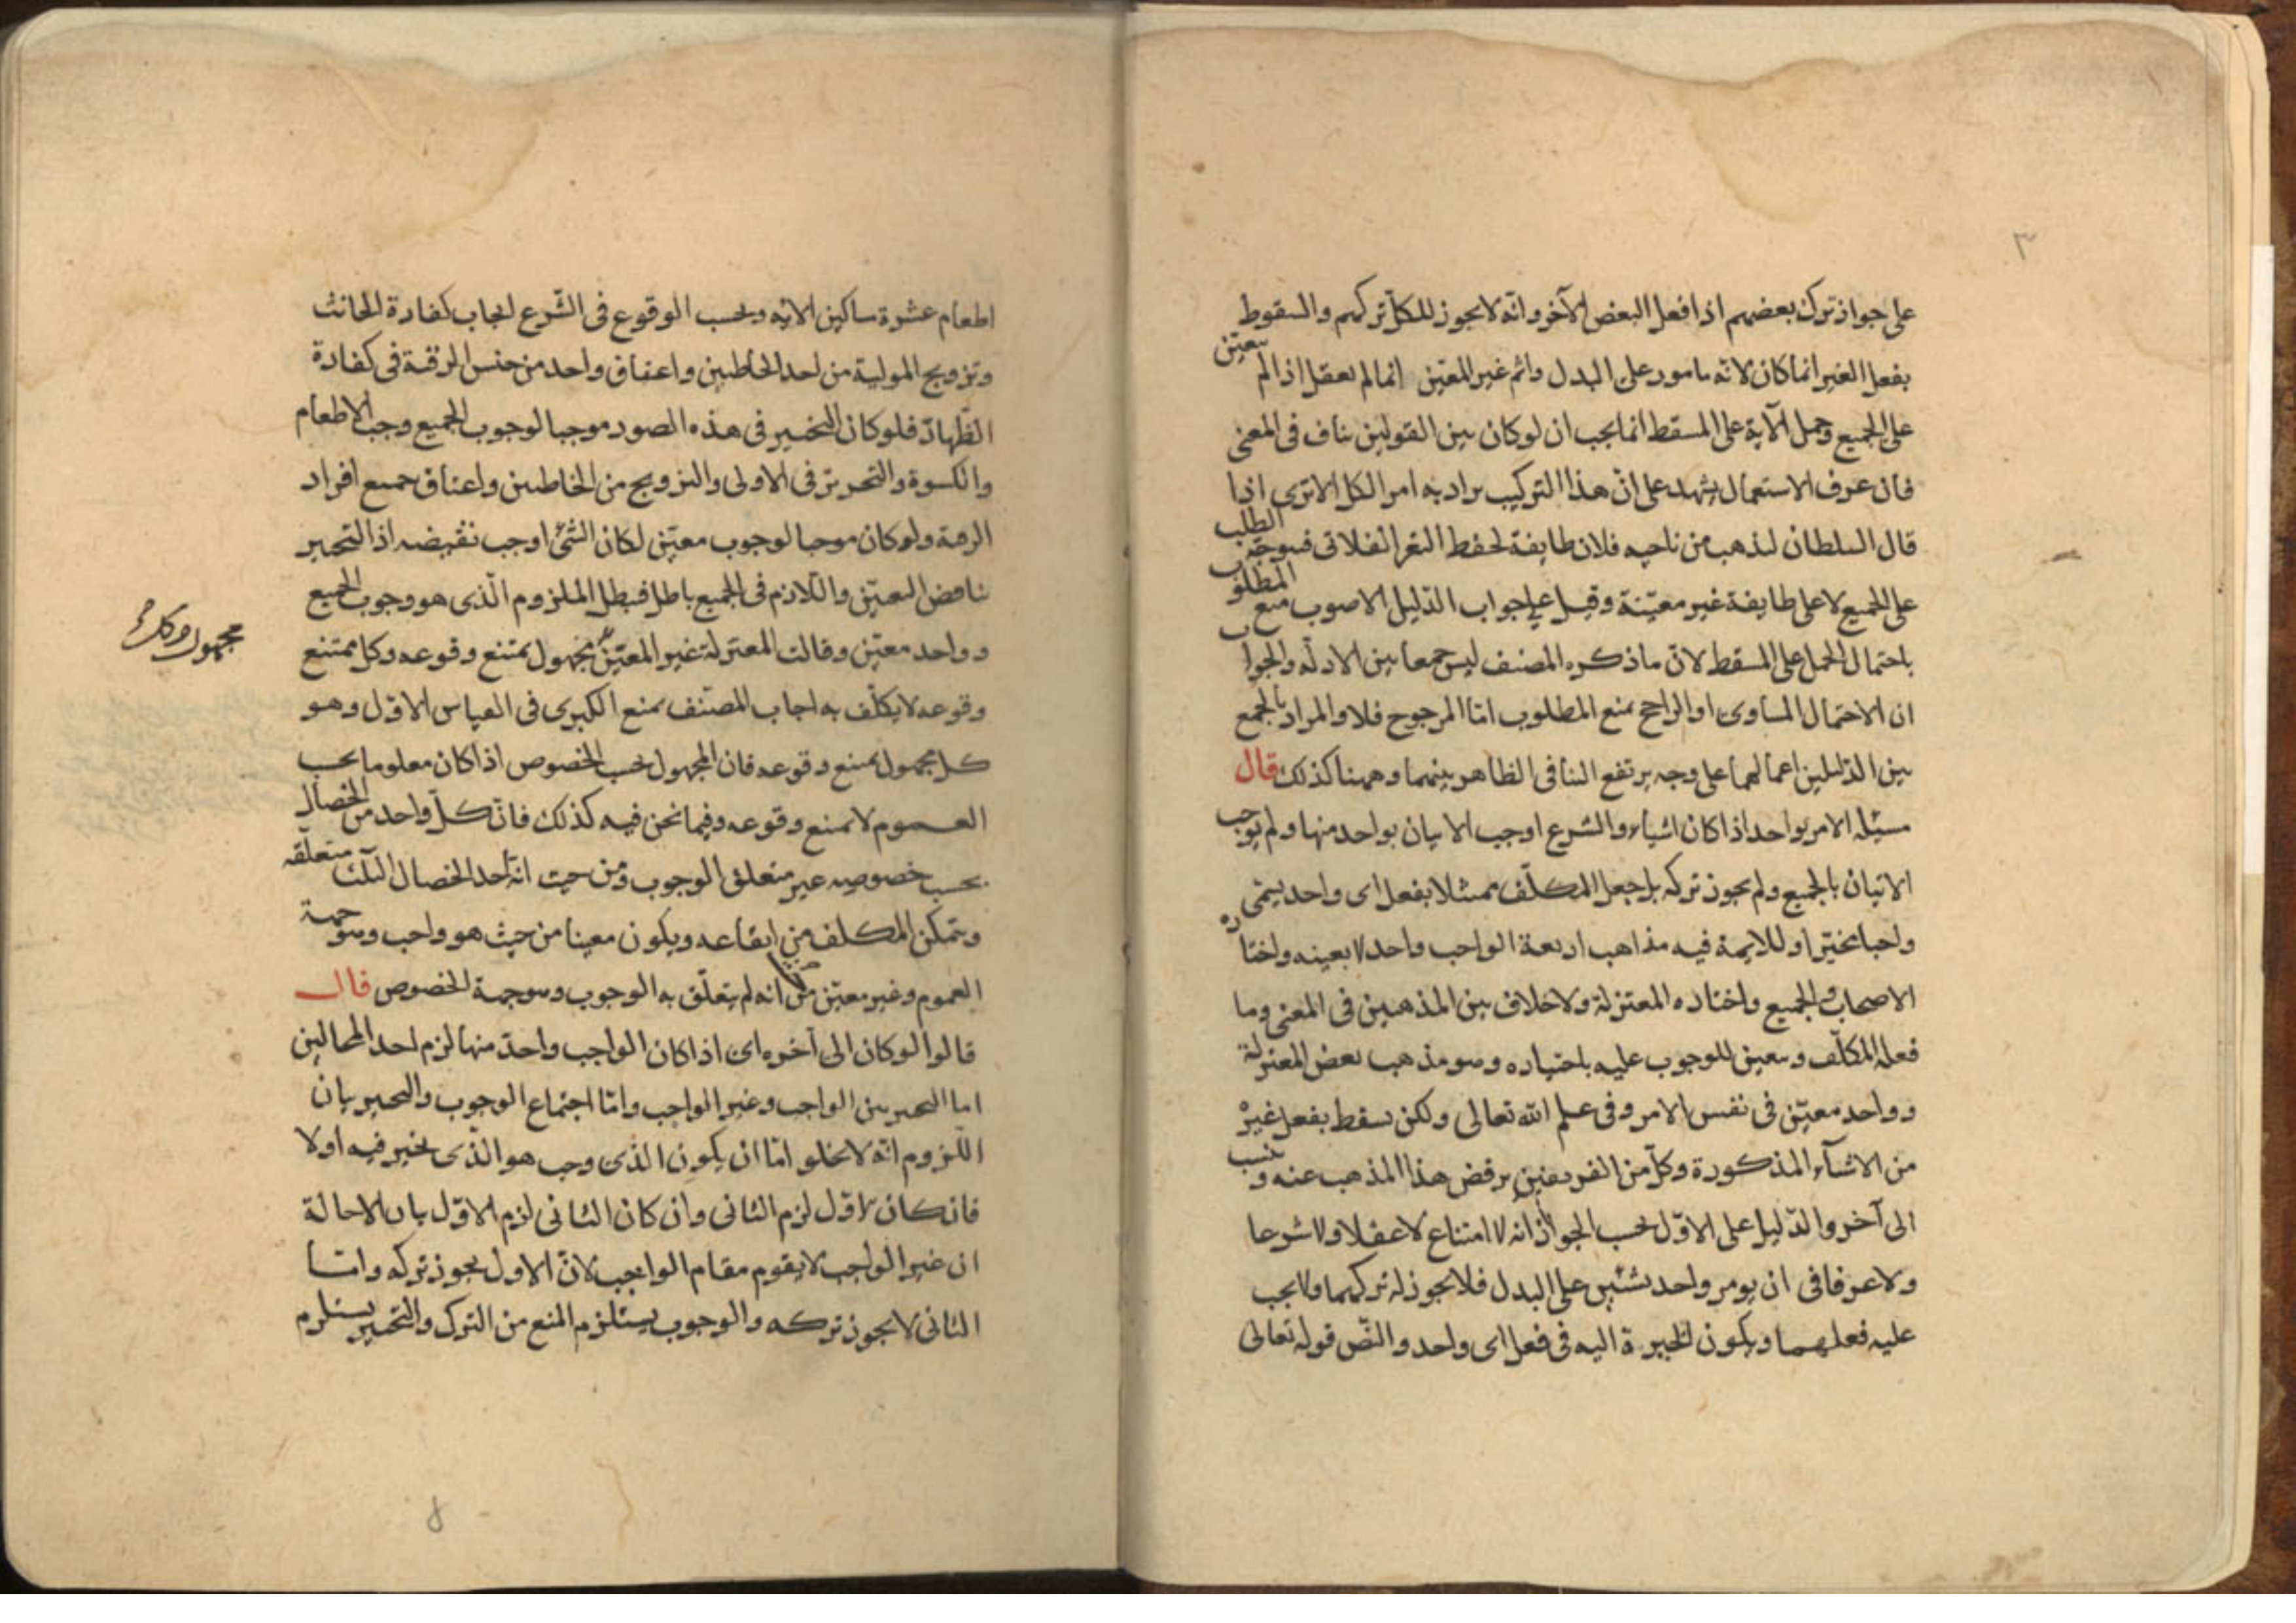 ٣
على جواز ترك بعضهم اذا فعل البعض الآخر وانه لا يجوز للكل تركهم والسقوط
بفعل الغير انما كان لانه مامور على البدل واثم غير المعين انما لم يعقل اذا لم يتعين
على الجميع وحمل الآية على المسقط انما يجب ان لو كان بين القولين تناف فى المعنى
فان عرف الاستعمال يشهد على ان هذا التركيب يراد به امر الكل الا ترى اذا
قال السلطان ليذهب من ناحيه فلان طايفة لحفظ الثغر الفلانى فيتوجه الطلب
على الجميع لا على طايفة غير معينة وقيل على جواب الدليل الاصوب منع المطلوب
باحتمال الحمل على المسقط لان ما ذكره المصنف ليس جمعا بين الادله والجواب
ان الاحتمال المساوى او الراجح يمنع المطلوب اما المرجوح فلا والمراد بالجمع
بين الدليلين اعمالهما على وجه يرتفع التنافى الظاهر بينهما وههنا كذلك قال
مسئله الامر بواحد اذا كان اشياء والشرع اوجب الاتيان بواحد منها ولم يوجب
الاتيان بالجميع ولم يجوز تركه بل جعل المكلف ممتثلا بفعل اى واحد يسمى
واجبا مخيرا وللايمة فيه مذاهب اربعة الواجب واحد لا بعينه واختاره
الاصحاب والجميع واختاره المعتزلة ولا خلاف بين المذهبين فى المعنى وما
فعله المكلف ويتعين للوجوب عليه باختياره وهو مذهب بعض المعتزلة
وواحد معين فى نفس الامر وفى علم الله تعالى ولكن يسقط بفعل غيره
من الاشياء المذكورة وكل من الفريقين يرفض هذا المذهب عنه وينسب
الى آخر والدليل على الاول بحسب الجواز انه لا امتناع لا عقلا ولا شرعا
ولا عرفا فى ان يومر واحد بشئين على البدل فلا يجوز له تركهما ولا يجب
عليه فعلهما ويكون الخيرة اليه فى فعل اى واحد والنص قوله تعالى
اطعام عشرة مساكين الاية وبحسب الوقوع فى الشرع ايجاب كفارة الحانث
وتزويج المولية من احد الخاطبين واعتاق واحد من جنس الرقبة فى كفارة
الظهار فلو كان التخيير فى هذه الصور موجبا لوجوب الجميع وجب الاطعام
والكسوة والتحرير فى الاولى والتزويج من الخاطبين واعتاق جميع افراد
الرقبة ولو كان موجبا لوجوب معين لكان الشئ اوجب نقيضه اذ التخيير
يناقض التعيين واللازم فى الجميع باطل فبطل الملزوم الذى هو وجوب الجميع
وواحد معين وقالت المعتزلة غير المعين مجهول يمتنع وقوعه وكل ممتنع
مجهول وكل
وقوعه لا يكلف به اجاب المصنف بمنع الكبرى فى القياس الاول وهو
كل مجهول يمتنع وقوعه فان المجهول بحسب الخصوص اذا كان معلوما بحسب
العموم لا يمتنع وقوعه وفيما نحن فيه كذلك فان كل واحد من الخصال
بحسب خصوصيه غير متعلق الوجوب ومن حيث انه احد الخصال الثلث متعلقه
ويتمكن المكلف من ايقاعه ويكون معينا من حيث هو واجب وهو جهة
العموم وغير معين من حيث انه لم يتعلق به الوجوب وهو جهة الخصوص قال
قالوا لو كان الى آخره اى اذا كان الواجب واحدا منها لزم احد المحالين
اما التخيير بين الواجب وغير الواجب واما اجتماع الوجوب والتخيير بيان
اللزوم انه لا يخلو اما ان يكون الذى وجب هو الذى يخير فيه اولا
فان كان الاول لزم الثانى وان كان الثانى لزم الاول بيان الاحالة
ان غير الواجب لا يقوم مقام الواجب لان الاول يجوز تركه واما
الثانى لا يجوز تركه والوجوب يستلزم المنع من الترك والتخيير يستلزم